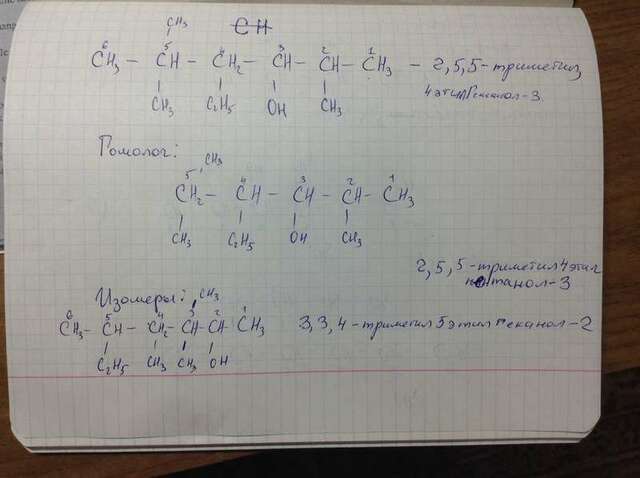 C̶H̶
CH₃
⁶CH₃ – ⁵CH – ⁴CH₂ – ³CH – ²CH – ¹CH₃ – 2,5,5-триметил
CH₃ C₂H₅ OH CH₃ 4этилгексанол-3.
Гомолог:
CH₃
⁵CH₂ – ⁴CH – ³CH – ²CH – ¹CH₃
CH₃ C₂H₅ OH CH₃
2,5,5-триметил4этил
пентанол-3
Изомеры: CH₃
⁶CH₃ – ⁵CH – ⁴CH – ³CH – ²CH – ¹CH₃ 3,3,4-триметил5этилгексанол-2
C₂H₅ CH₃ CH₃ OH